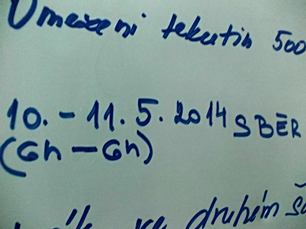 Omezení tekutin 500
10. - 11. 5. 2014 SBĚR
(6h - 6h)
ve druhém